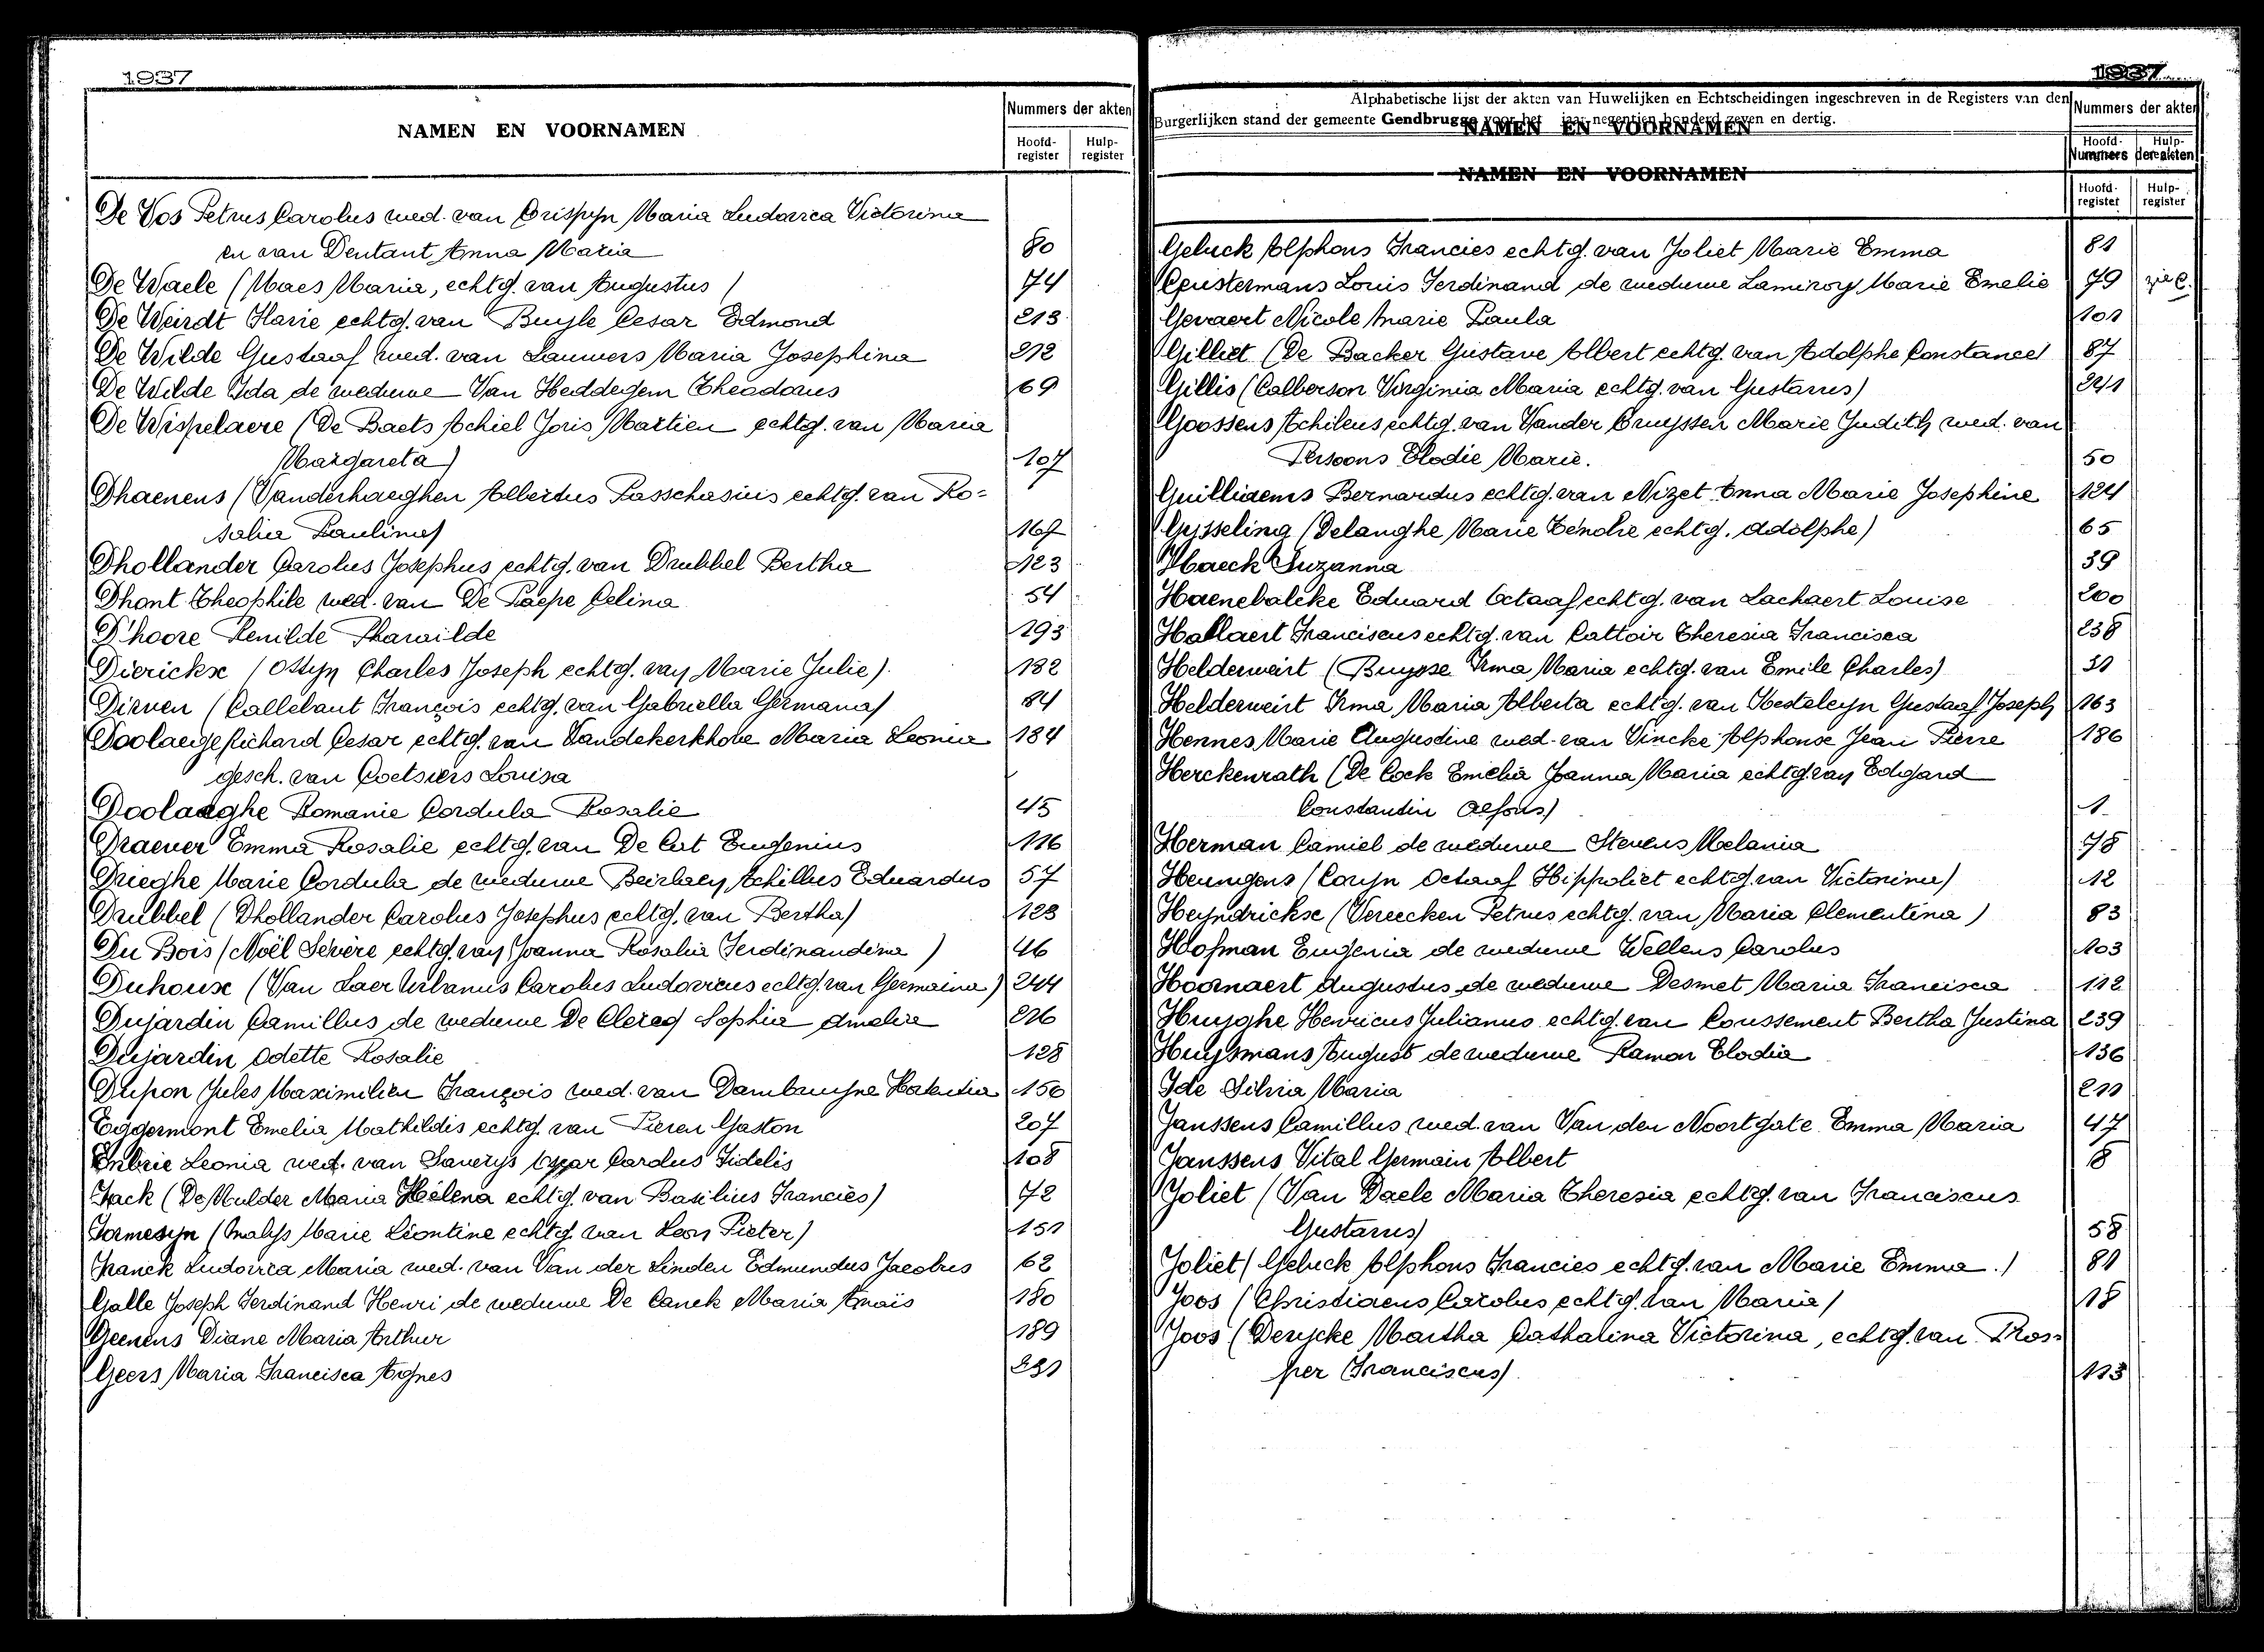 1937
NAMEN EN VOORNAMEN
Nummers der akten
Hoofd-register
Hulp-register
De Vos Petrus Carolus wed. van Crispyn Maria Ludovica Victorina
en van Dentant Anna Maria 80
De Waele (Maes Maria, echtg. van Augustus) 74
De Weirdt Marie echtg. van Buyle Cesar Edmond 213
De Wilde Gustaaf wed. van Lauwers Maria Josephina 212
De Wilde Ida de weduwe Van Heddegem Theodorus 69
De Wispelaere (De Baets Achiel Joris Martien echtg. van Maria
Margareta) 107
Dhaenens (Vanderhaeghen Albertus Passchasius echtg. van Ro-
salia Paulina) 167
Dhollander Carolus Josephus echtg. van Drubbel Bertha 123
Dhont Theophile wed. van De Paepe Celina 54
D'hoore Renilde Pharaïlde 193
Dierickx (Ostyn Charles Joseph echtg. van Marie Julie) 182
Dirven (Callebaut François echtg. van Gabriella Germana) 84
Doolaege Richard Cesar echtg. van Vandekerkhove Maria Leonia 184
gesch. van Coetsiers Louisa
Doolaeghe Romanie Cordula Rosalie 45
Draever Emma Rosalie echtg. van De Cat Eugenius 116
Drieghe Marie Cordula de weduwe Beirlaey Achillus Eduardus 57
Drubbel (Dhollander Carolus Josephus echtg. van Bertha) 123
Du Bois (Noël Sévère echtg. van Joanna Rosalia Ferdinandina) 46
Duhoux (Van Laer Urbanus Carolus Ludovicus echtg. van Germaina) 244
Dujardin Camillus de weduwe De Clercq Sophia Amelia 226
Dujardin Odette Rosalie 128
Dupon Jules Maximilien François wed. van Dambruyne Hortentia 150
Eggermont Emelia Mathildis echtg. van Pieren Gaston 207
Enbrie Leonia wed. van Saverys Carolus Fidelis 108
Fack (De Mulder Maria Hélena echtg. van Basilius Francies) 72
Formesyn (Malys Marie Léontine echtg. van Leon Pieter) 151
Franck Ludovica Maria wed. van Van der Linden Edmundus Jacobus 62
Galle Joseph Ferdinand Henri de weduwe De Canck Maria Anaïs 180
Geenens Diane Maria Arthur 189
Geers Maria Francisca Agnes 231
1937
Alphabetische lijst der akten van Huwelijken en Echtscheidingen ingeschreven in de Registers van den
Burgerlijken stand der gemeente Gendbrugge voor het jaar negentien honderd zeven en dertig.
NAMEN EN VOORNAMEN
Nummers der akten
Hoofd-
Hulp-
Nummers der akten
NAMEN EN VOORNAMEN
Hoofd-register
Hulp-register
Geluck Alphons Francies echtg. van Joliet Marie Emma 81
Ceustermans Louis Ferdinand de weduwe Lamiroy Marie Emelie 79 zie C.
Gevaert Nicole Marie Paula 101
Gilliet (De Backer Gustave Albert echtg. van Adolphe Constance) 87
Gillis (Calberson Virginia Maria echtg. van Gustavus) 241
Goossens Achileus echtg. van Vander Cruyssen Marie Judith wed. van
Persoons Elodie Marie. 50
Guilliaems Bernardus echtg. van Nizet Anna Marie Josephine 124
Gysseling (Delanghe Marie Zénobie echtg. Adolphe) 65
Haeck Suzanna 39
Haenebalcke Eduard Octaaf echtg. van Lachaert Louise 200
Hallaert Franciscus echtg. van Cattoir Theresia Francisca 238
Helderweirt (Buysse Irma Maria echtg. van Emile Charles) 31
Helderweirt Irma Maria Alberta echtg. van Hesteleyn Gustaaf Joseph 163
Hennes Marie Augustine wed. van Vincke Alphonse Jean Pierre 186
Herckenrath (De Cock Emelia Joanna Maria echtg. van Edgard
Constantin Alfons) 1
Herman Camiel de weduwe Stevens Melania 78
Heunigens (Coryn Octaaf Hippoliet echtg. van Victorina) 12
Heyndrickx (Vereecken Petrus echtg. van Maria Clementina) 83
Hofman Eugenia de weduwe Wellens Carolus 103
Hoornaert Augustus de weduwe Desmet Maria Francisca 112
Huyghe Henricus Julianus echtg. van Coussement Bertha Justina 239
Huysmans August de weduwe Ramon Elodia 136
Ide Silvia Maria 211
Janssens Camillus wed. van Van den Noortgate Emma Maria 47
Janssens Vital Germain Albert 8
Joliet (Van Daele Maria Theresia echtg. van Franciscus
Gustavus) 58
Joliet (Geluck Alphons Francies echtg. van Marie Emma.) 81
Joos (Christiaens Carolus echtg. van Maria) 18
Joos (Derycke Martha Cathalina Victorina, echtg. van Pros-
per Franciscus) 113